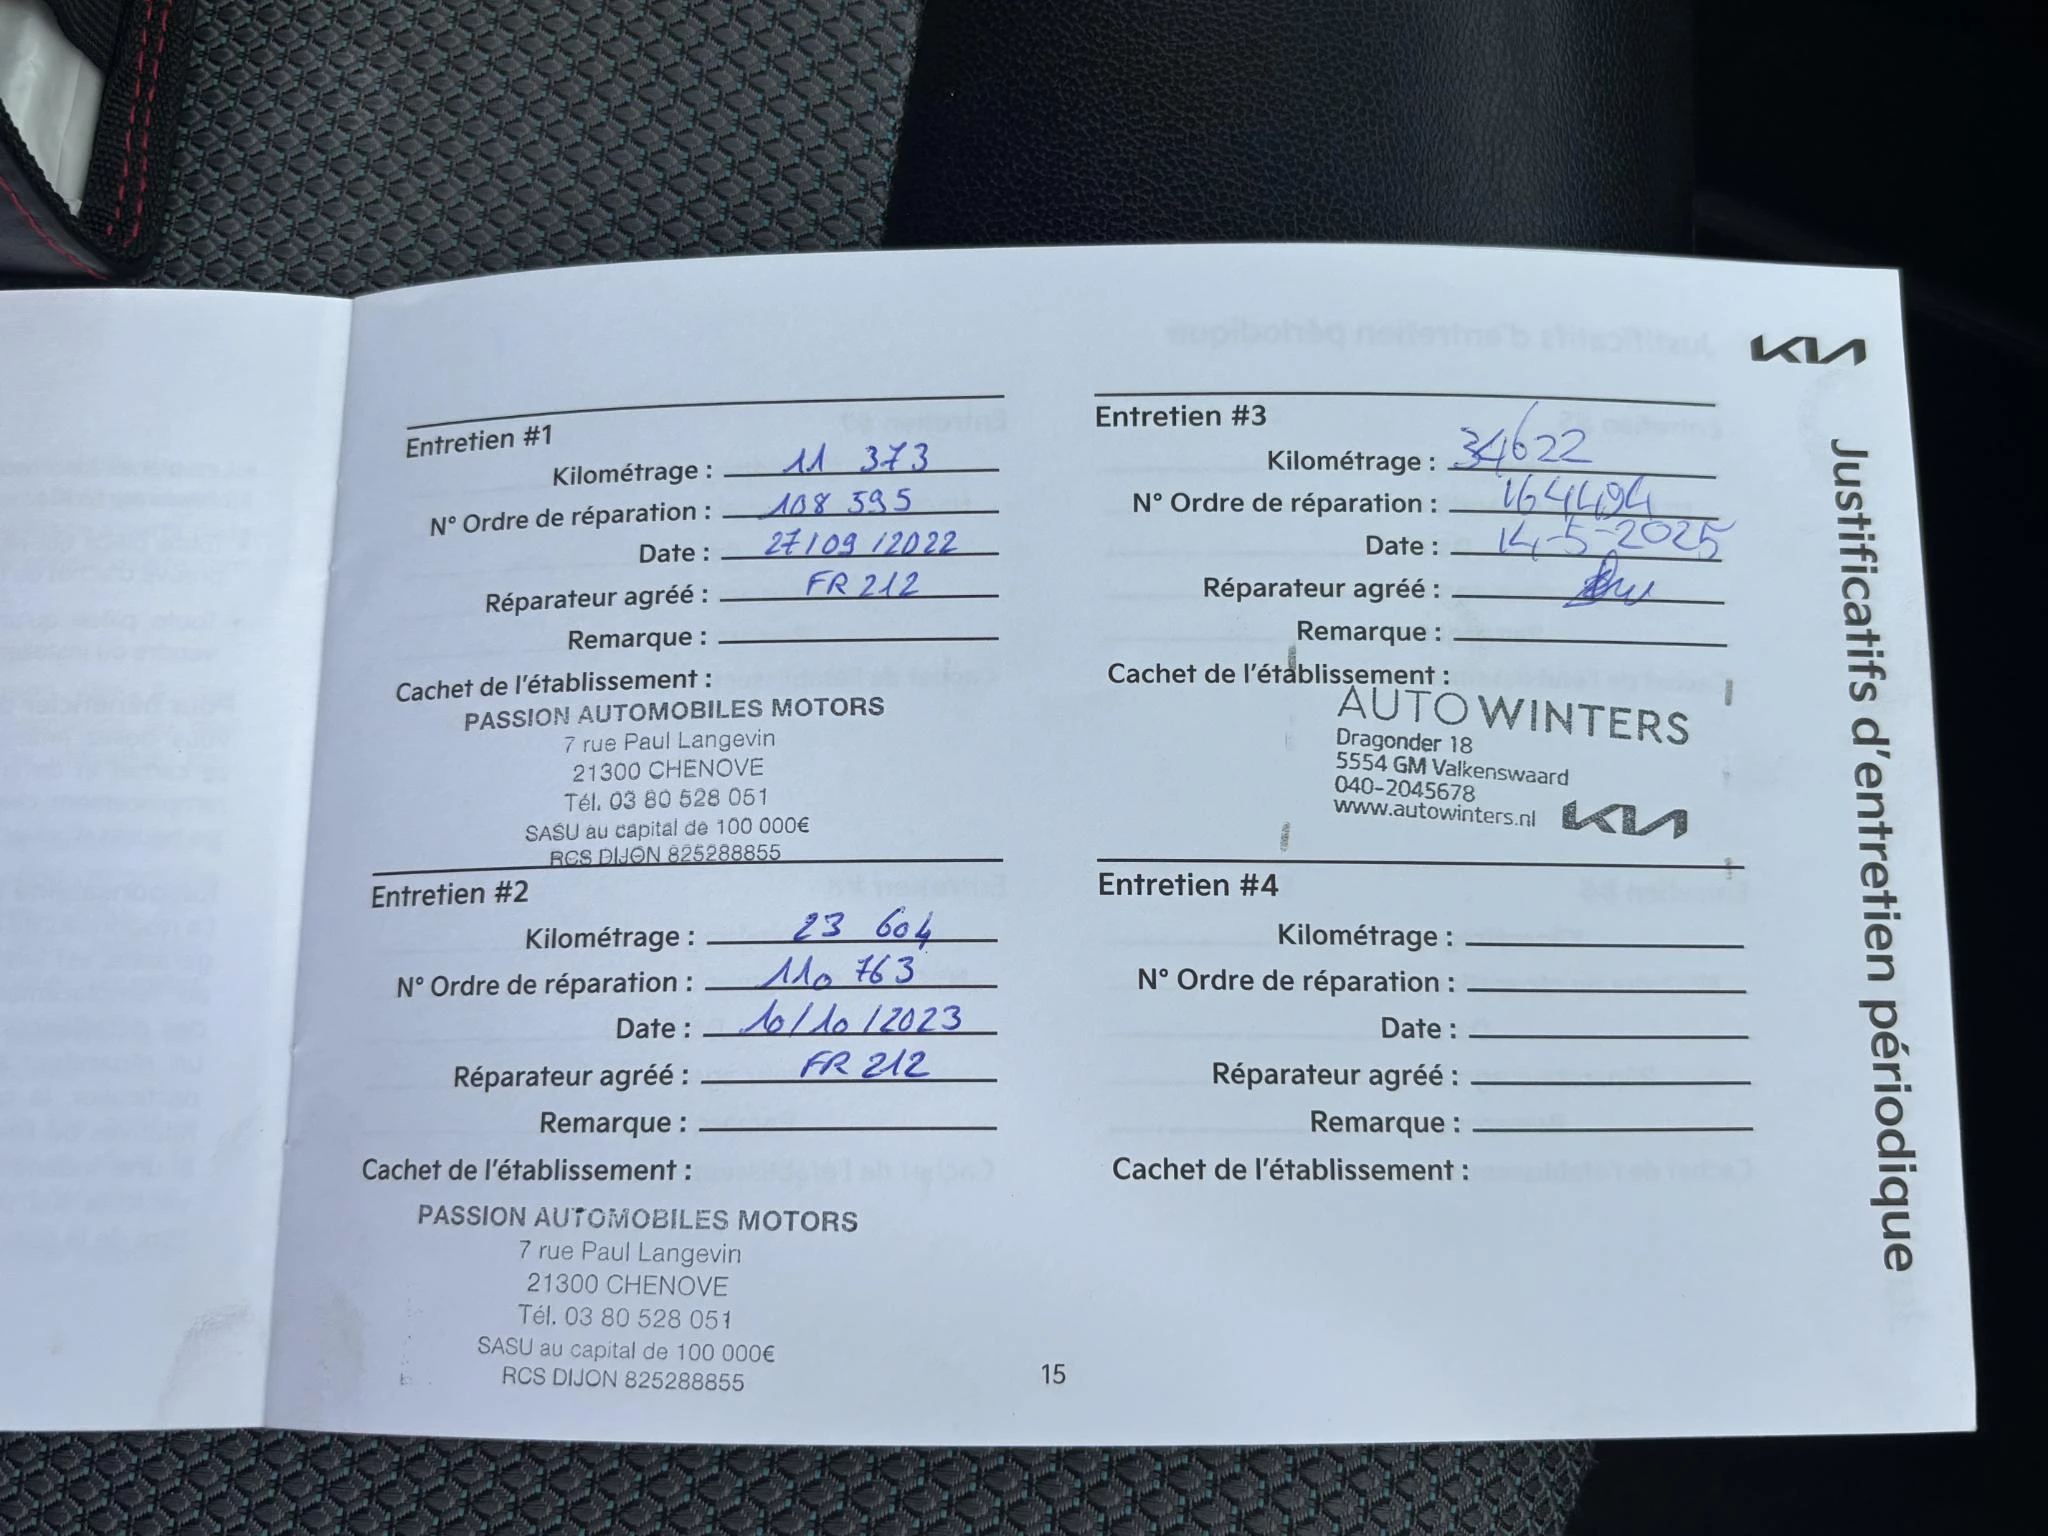 KIA
Justificatifs d'entretien périodique
Entretien #1
Kilométrage : 11 373
N° Ordre de réparation : 108 595
Date : 27/09/2022
Réparateur agréé : FR 212
Remarque :
Cachet de l'établissement :
PASSION AUTOMOBILES MOTORS
7 rue Paul Langevin
21300 CHENOVE
Tél. 03 80 528 051
SASU au capital de 100 000€
RCS DIJON 825288855
Entretien #2
Kilométrage : 23 604
N° Ordre de réparation : 110 763
Date : 10/10/2023
Réparateur agréé : FR 212
Remarque :
Cachet de l'établissement :
PASSION AUTOMOBILES MOTORS
7 rue Paul Langevin
21300 CHENOVE
Tél. 03 80 528 051
SASU au capital de 100 000€
RCS DIJON 825288855
Entretien #3
Kilométrage : 34622
N° Ordre de réparation : 164494
Date : 14-5-2025
Réparateur agréé :
Remarque :
Cachet de l'établissement :
AUTO WINTERS
Dragonder 18
5554 GM Valkenswaard
040-2045678
www.autowinters.nl
KIA
Entretien #4
Kilométrage :
N° Ordre de réparation :
Date :
Réparateur agréé :
Remarque :
Cachet de l'établissement :
15